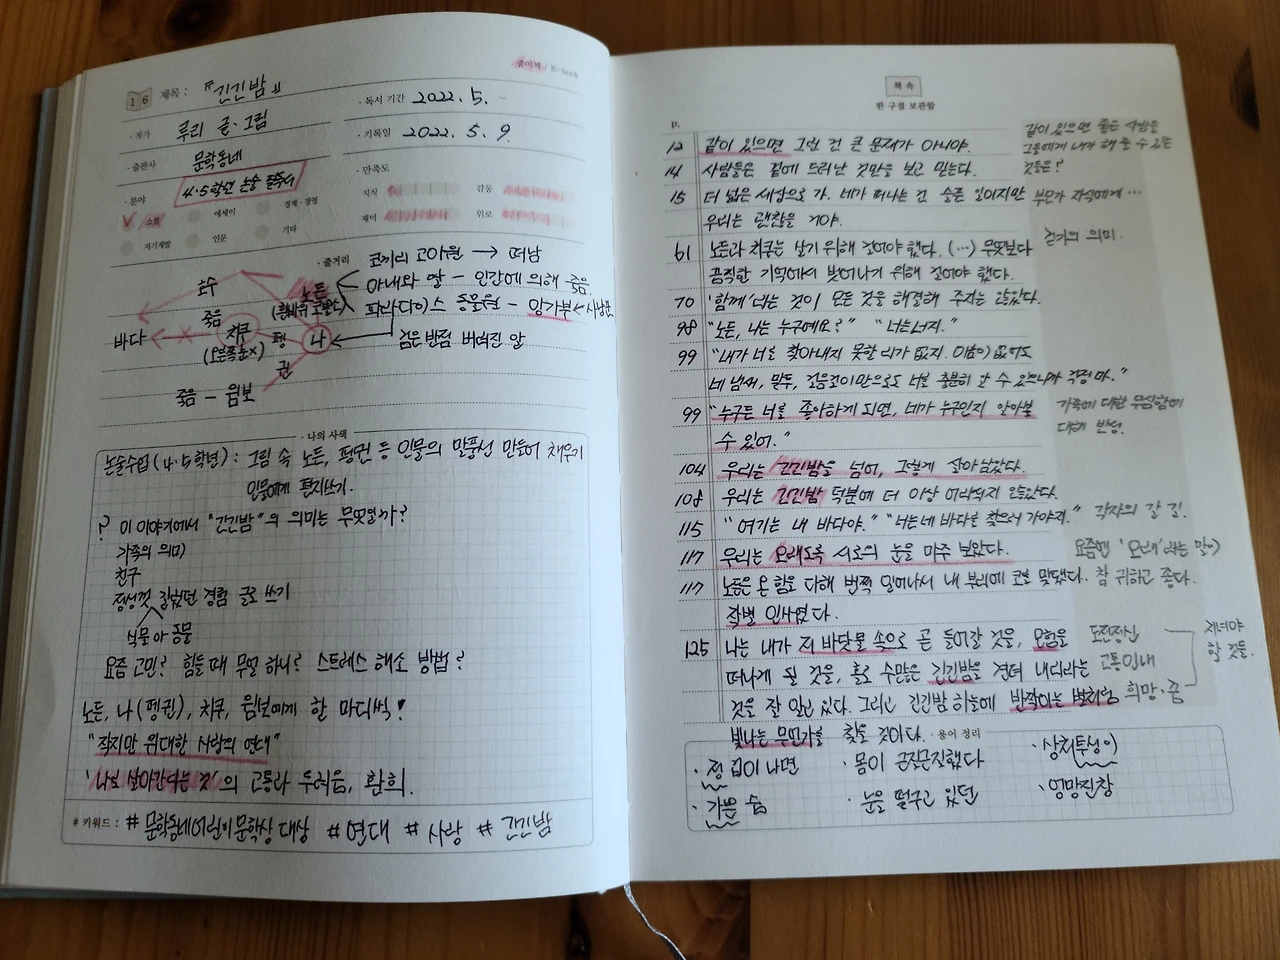 종이책 / E-book
16 제목 : 『긴긴밤』
· 독서 기간 2022. 5. -
· 작가 루리 글·그림
· 기록일 2022. 5. 9.
· 출판사 문학동네
· 만족도
· 분야 4·5학년 논술 필독서
지식 감동
소설 에세이 경제·경영
재미 위로
자기계발 인문 기타
· 줄거리
코끼리 고아원 → 떠남
호수 노든
아내와 딸 - 인간에 의해 죽음.
(흰바위 코뿔소)
파라다이스 동물원 - 앙가부 ← 사냥꾼
죽음
바다 치쿠 펭 나
검은 반점 버려진 알
(오른쪽 눈 x) 권
죽음 - 윔보
· 나의 사색
논술수업(4·5학년) : 그림 속 노든, 펭귄 등 인물의 말풍선 만들어 채우기
인물에게 편지쓰기.
? 이 이야기에서 "긴긴밤"의 의미는 무엇일까?
가족의 의미
친구
정성껏 길렀던 경험 글로 쓰기
식물 아 동물
요즘 고민? 힘들 때 무얼 하니? 스트레스 해소 방법?
노든, 나(펭귄), 치쿠, 윔보에게 한 마디씩!
"작지만 위대한 사랑의 연대"
'나로 살아간다는 것'의 고통과 두려움, 환희.
# 키워드 : # 문학동네어린이문학상 대상 # 연대 # 사랑 # 긴긴밤
책 속
한 구절 보관함
p.
12 같이 있으면 그런 건 큰 문제가 아니야.
같이 있으면 좋은 사람들
그들에게 내가 해 줄 수 있는
것들은?
14 사람들은 겉에 드러난 것만을 보고 믿는다.
15 더 넓은 세상으로 가. 네가 떠나는 건 슬픈 일이지만
우리는 괜찮을 거야.
부모가 자식에게 …
61 노든과 치쿠는 살기 위해 걸어야 했다. (…) 무엇보다
끔찍한 기억에서 벗어나기 위해 걸어야 했다.
걷기의 의미.
70 '함께'라는 것이 모든 것을 해결해 주지는 않았다.
98 "노든, 나는 누구예요?" "너는 너지."
99 "내가 너를 찾아내지 못할 리가 없지. 이름이 없어도
네 냄새, 말투, 걸음걸이만으로도 너를 충분히 알 수 있으니까 걱정 마."
99 "누구든 너를 좋아하게 되면, 네가 누구인지 알아볼
수 있어."
가족에 대한 무심함에
대해 반성.
104 우리는 긴긴밤을 넘어, 그렇게 살아남았다.
108 우리는 긴긴밤 덕분에 더 이상 어리석지 않았다.
115 "여기는 내 바다야." "너는 네 바다를 찾으러 가야지."
각자의 갈 길.
117 우리는 오래도록 서로의 눈을 마주 보았다.
요즘엔 '오래'라는 말이
참 귀하고 좋다.
117 노든은 온 힘을 다해 번쩍 일어나서 내 부리에 코를 맞댔다.
작별 인사였다.
125 나는 내가 저 바닷물 속으로 곧 들어갈 것을, 모험을
떠나게 될 것을, 홀로 수많은 긴긴밤을 견뎌 내리라는
것을 잘 알고 있다. 그리고 긴긴밤 하늘에 반짝이는 별처럼
빛나는 무언가를 찾을 것이다.
도전정신
고통 인내
희망·꿈
가져야
할 것들.
· 용어 정리
· 정 깊이 나면 · 몸이 근질근질했다 · 상처투성이
· 가쁜 숨 · 눈을 떨구고 있던 · 엉망진창